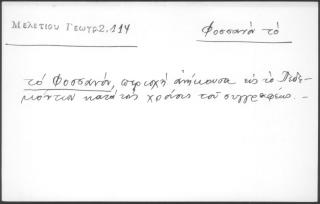 Μελετίου Γεωγρ. 114
Φοσσανόν τό
τό Φοσσανόν, περιοχή ἀνήκουσα εἰς τό Πεδε-
μόντιον κατά τούς χρόνους τοῦ συγγραφέως. -